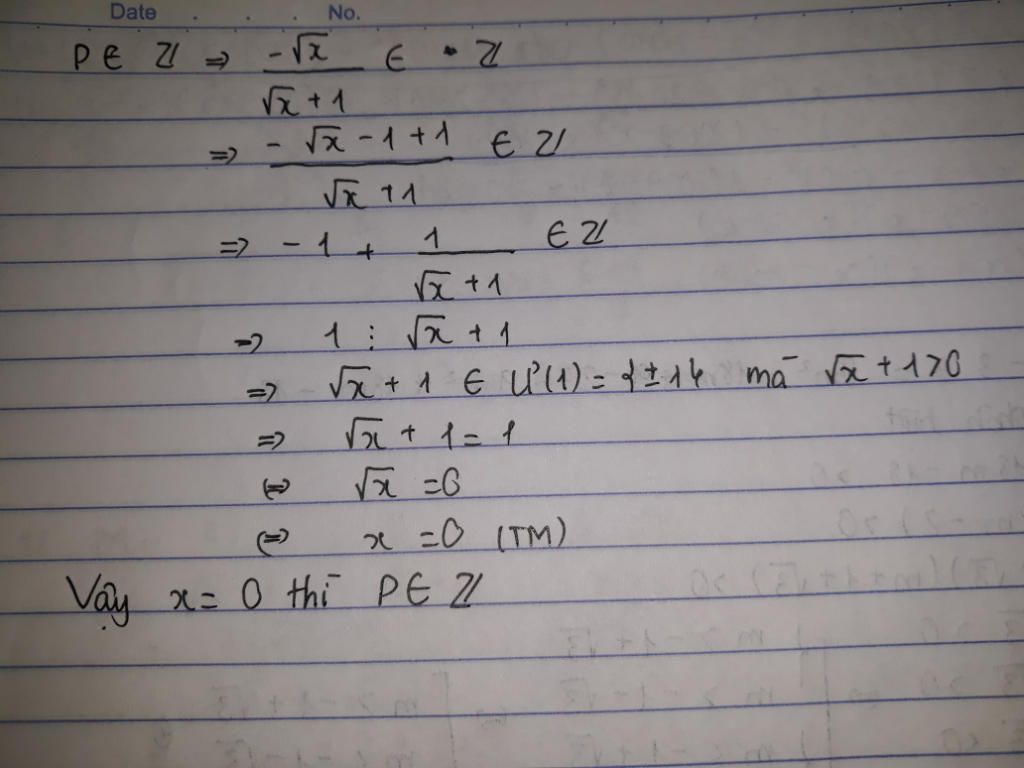 Date . . . No.
P ∈ Z ⇒ -√x / (√x + 1) ∈ Z
⇒ (-√x - 1 + 1) / (√x + 1) ∈ Z
⇒ -1 + 1 / (√x + 1) ∈ Z
⇒ 1 ⋮ √x + 1
⇒ √x + 1 ∈ Ư(1) = {±1} mà √x + 1 > 0
⇒ √x + 1 = 1
⇔ √x = 0
⇔ x = 0 (TM)
Vậy x = 0 thì P ∈ Z